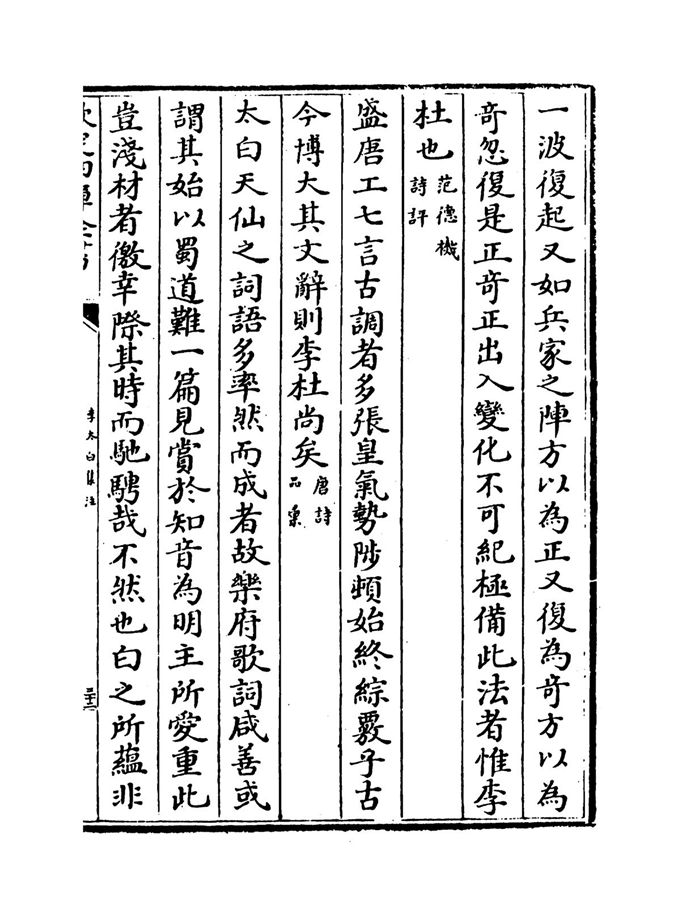 一波復起又如兵家之陣方以為正又復為奇方以為
奇忽復是正奇正出入變化不可紀極備此法者惟李
杜也范德機詩評
盛唐工七言古調者多張皇氣勢陟頓始終綜覈乎古
今博大其文辭則李杜尚矣唐詩品彙
太白天仙之詞語多率然而成者故樂府歌詞咸善或
謂其始以蜀道難一篇見賞於知音為明主所愛重此
豈淺材者儌幸際其時而馳騁哉不然也白之所蘊非
李太白集注
三十二